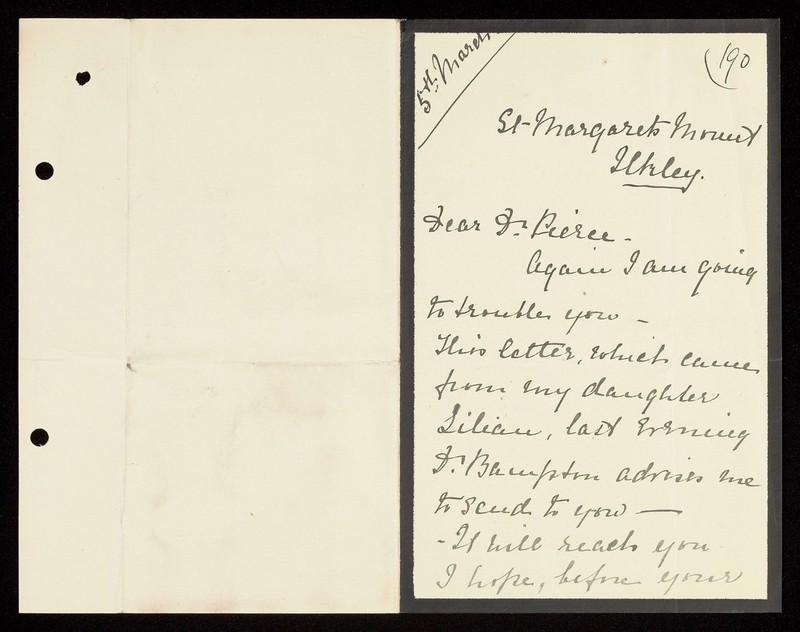 5th March
190
St Margarets Mount
Ilkley.
Dear Dr Pierce -
Again I am going
to trouble you -
This letter, which came
from my daughter
Lilian, last evening
Dr Bampton advises me
to send to you -
- It will reach you
I hope, before your